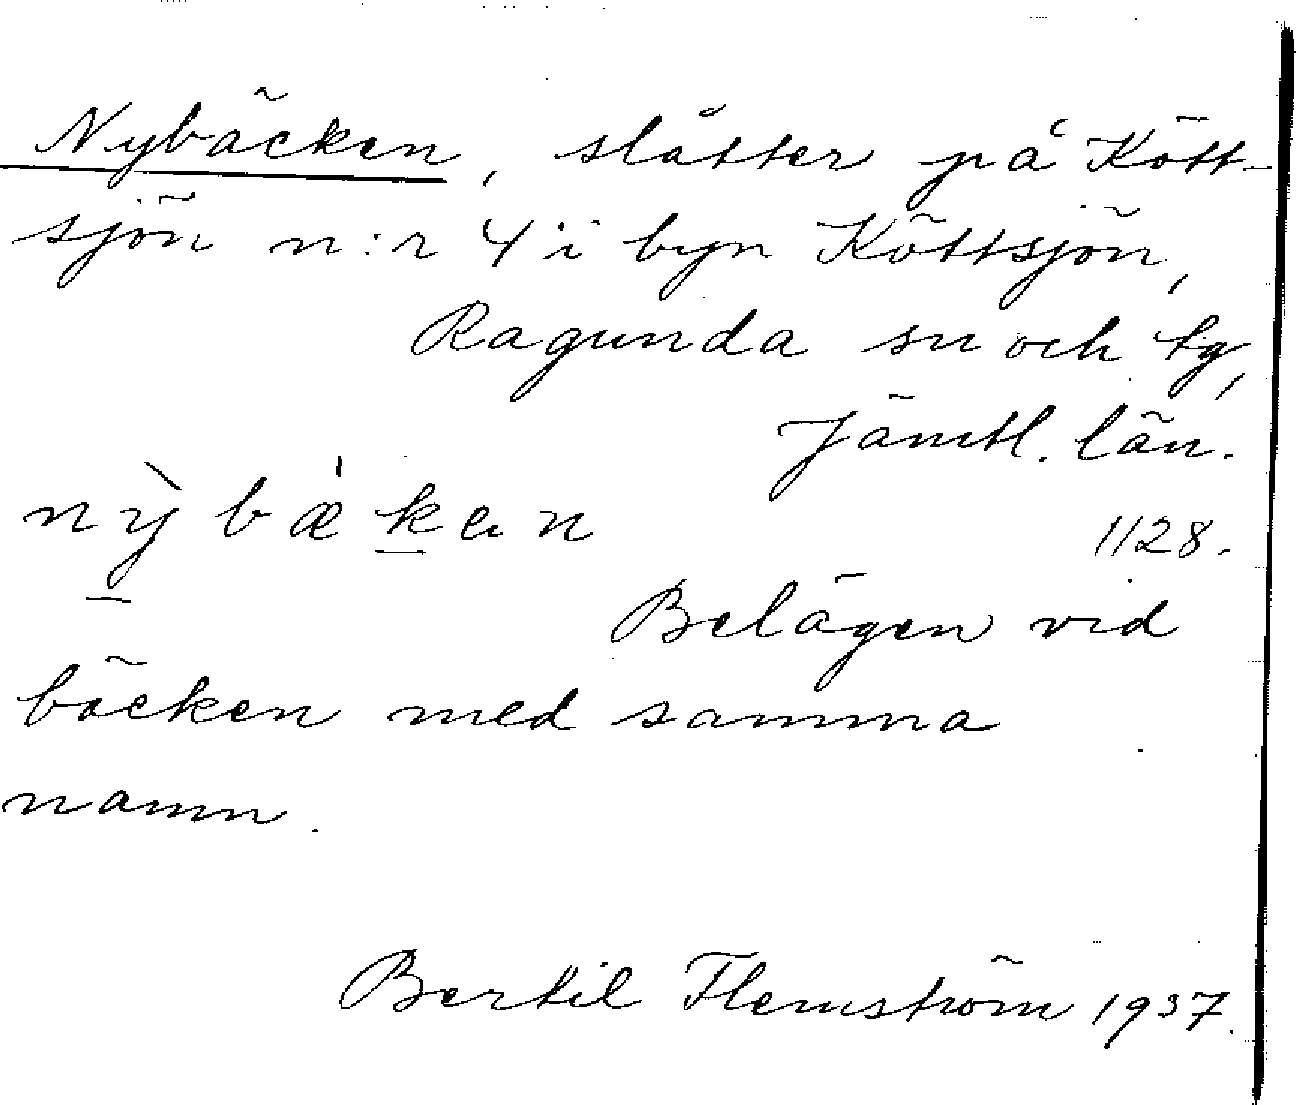 Nybäcken, slåtter på Kött-
sjön n:r 4 i byn Köttsjön,
Ragunda sn och tg,
Jämtl. län.
nỳbækan
1128.
Belägen vid
bäcken med samma
namn.
Bertil Flemström 1937.